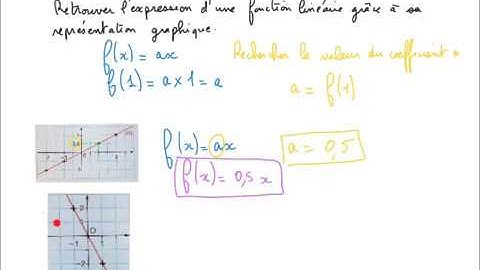 Retrouver l'expression d'une fonction linéaire grâce à sa
représentation graphique.
f(x) = ax
Rechercher la valeur du coefficient a
f(1) = a x 1 = a
a = f(1)
f(x) = ax
a = 0,5
f(x) = 0,5 x
2
1
O
-1
1
-1
-2